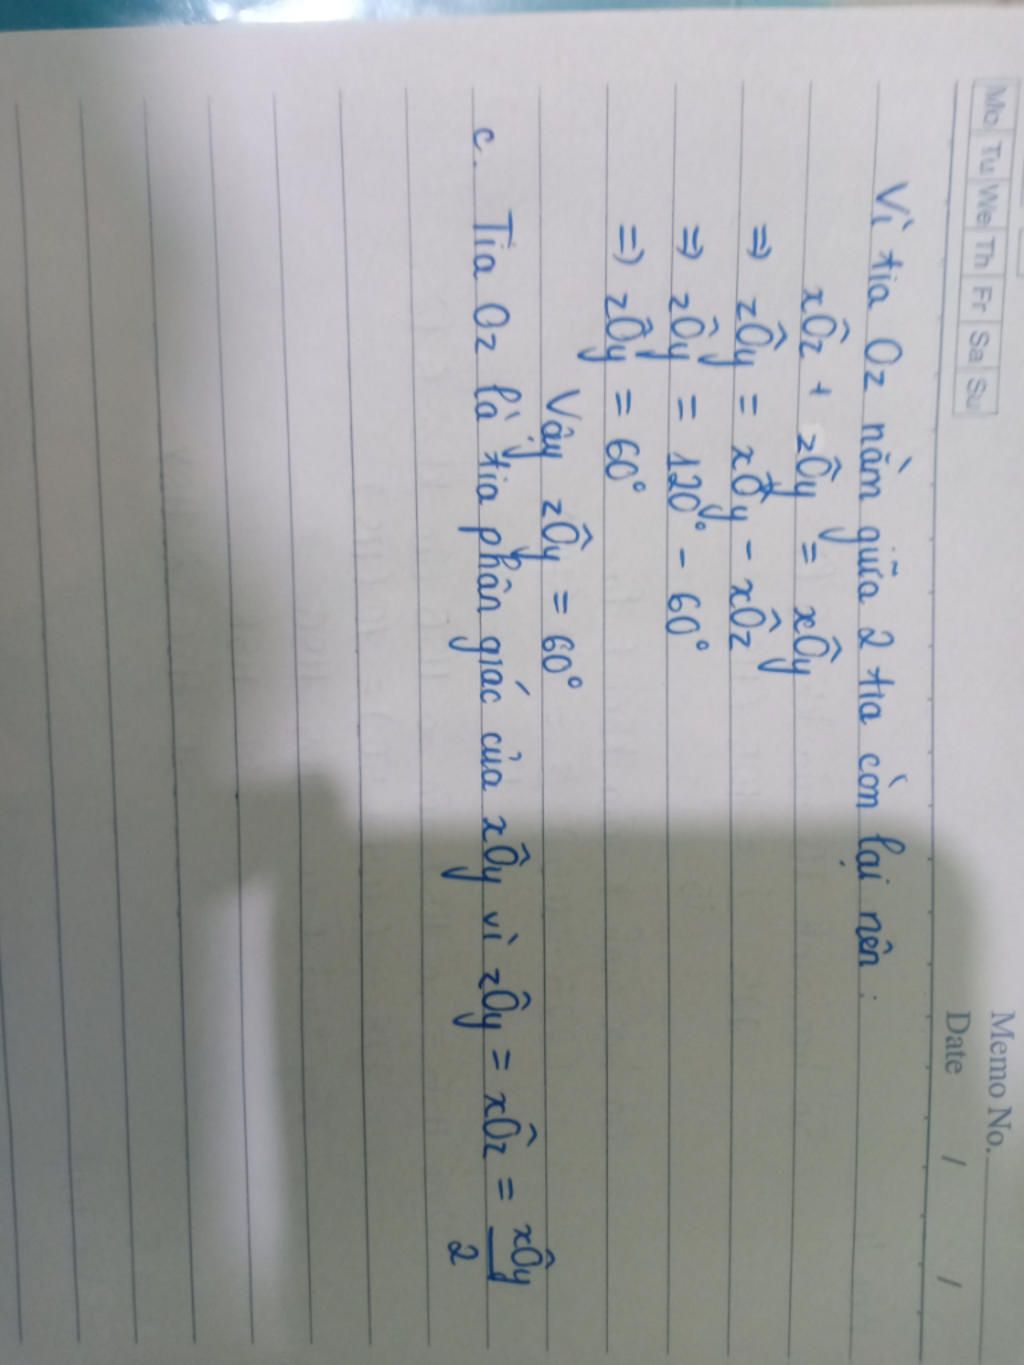 Memo No.
Mo Tu We Th Fr Sa Su Date / /
Vì tia Oz nằm giữa 2 tia còn lại nên:
xÔz + zÔy = xÔy
=> zÔy = xÔy - xÔz
=> zÔy = 120° - 60°
=> zÔy = 60°
Vậy zÔy = 60°
c. Tia Oz là tia phân giác của xÔy vì zÔy = xÔz = xÔy/2